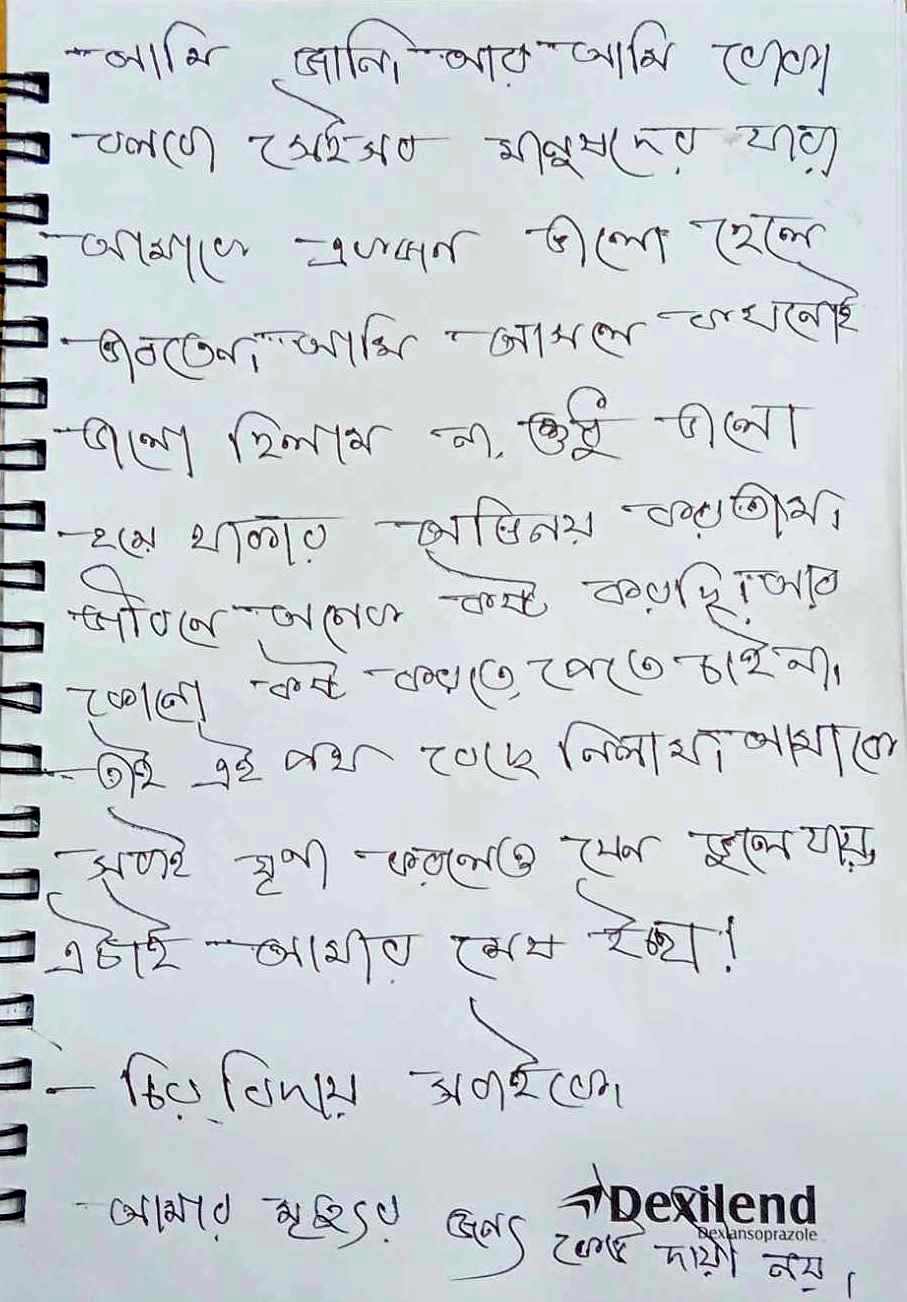 আমি জানি, আর আমি
বলবো সেইসব মানুষদের যারা
আমাকে একজন ভালো ছেলে
ভাবতেন, আমি আসলে কখনোই
ভালো ছিলাম না, শুধু ভালো
হয়ে থাকার অভিনয় করতাম।
জীবনে অনেক কষ্ট করছি। আর
কোনো কষ্ট করতে, পেতে চাই না।
তাই এই পথ বেছে নিলাম। আমাকে
সবাই ঘৃণা করলেও যেন ভুলে যায়,
এটাই আমার শেষ ইচ্ছা!
- চির বিদায় সবাইকে
আমার মৃত্যুর জন্য কেউ দায়ী নয়।
Dexilend
Dexlansoprazole